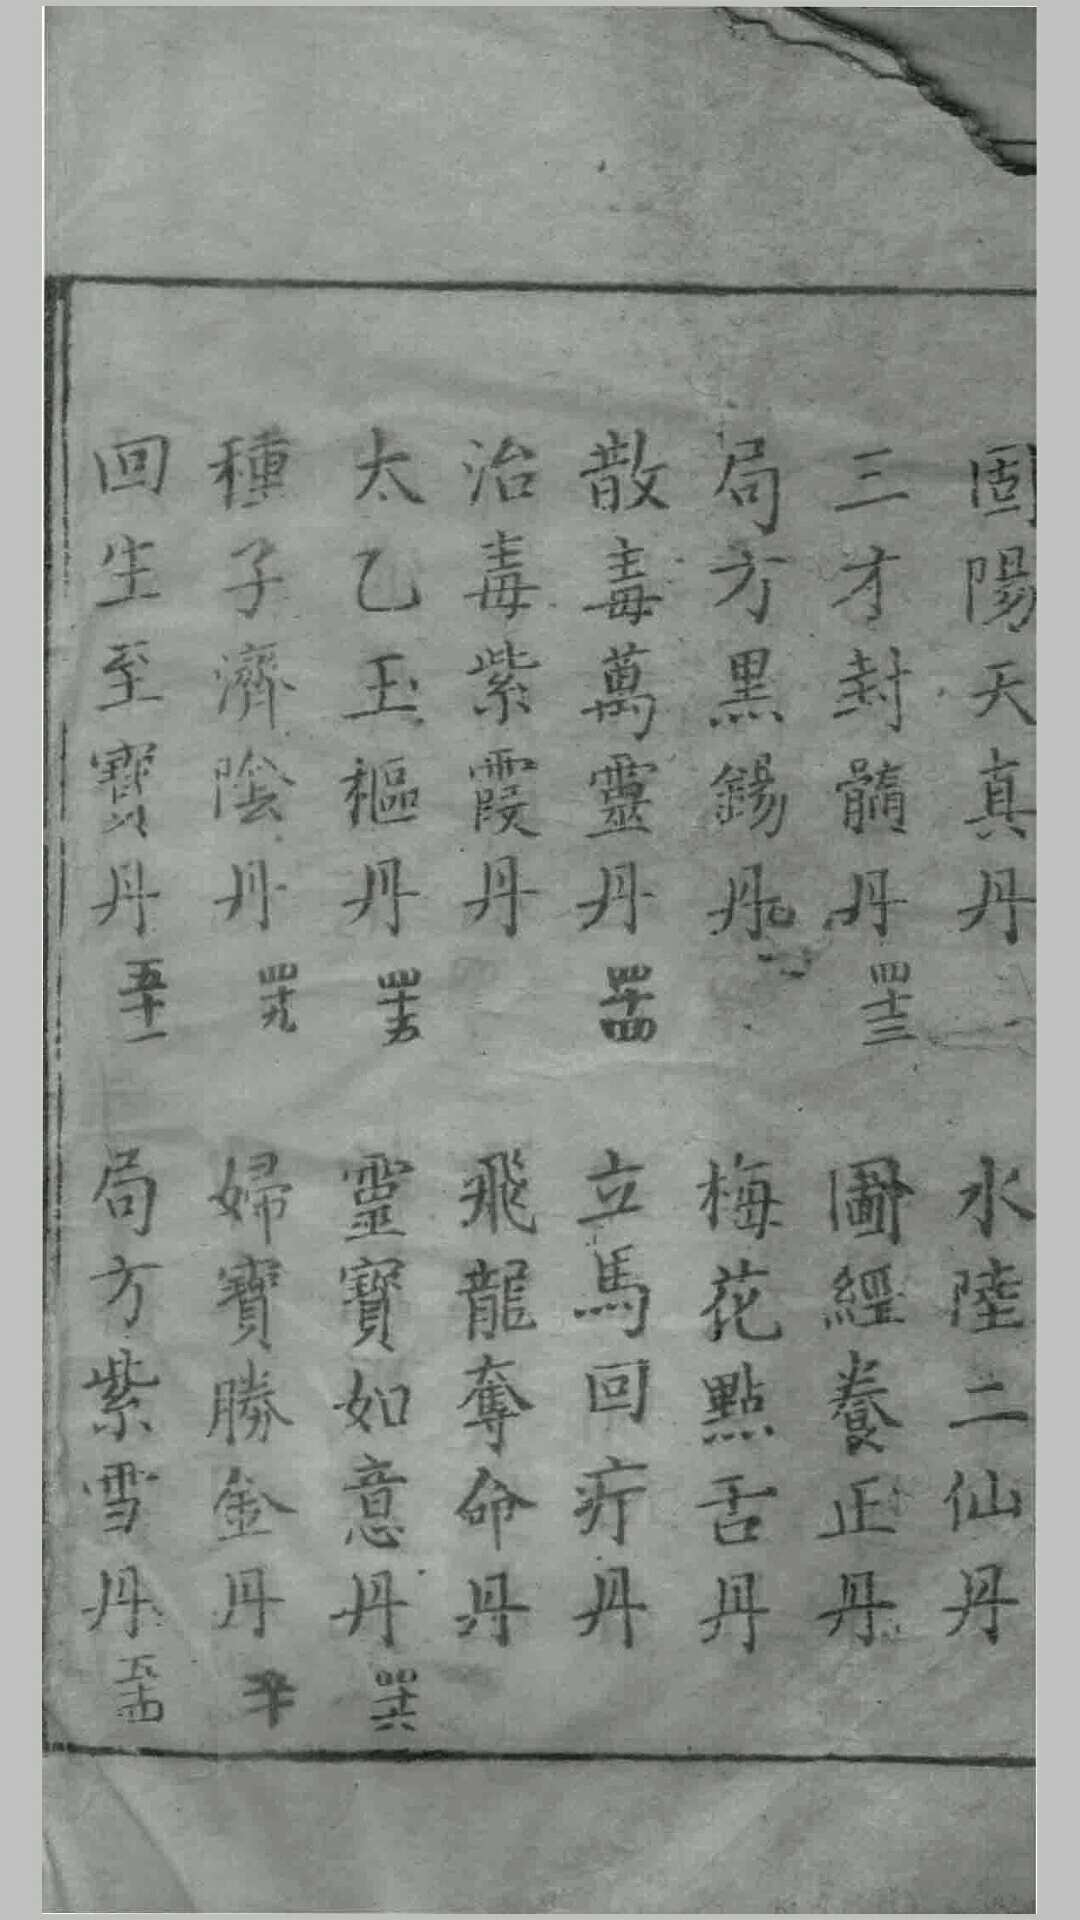 固陽天真丹 水陸二仙丹
三才封髓丹 四十三 圖經養正丹
局方黑錫丹 梅花點舌丹
散毒萬靈丹 四十四 立馬回疔丹
治毒紫霞丹 飛龍奪命丹
太乙玉樞丹 四十五 靈寶如意丹 四十六
種子濟陰丹 四十九 婦寶勝金丹 五十
回生至寶丹 五十一 局方紫雪丹 五十四